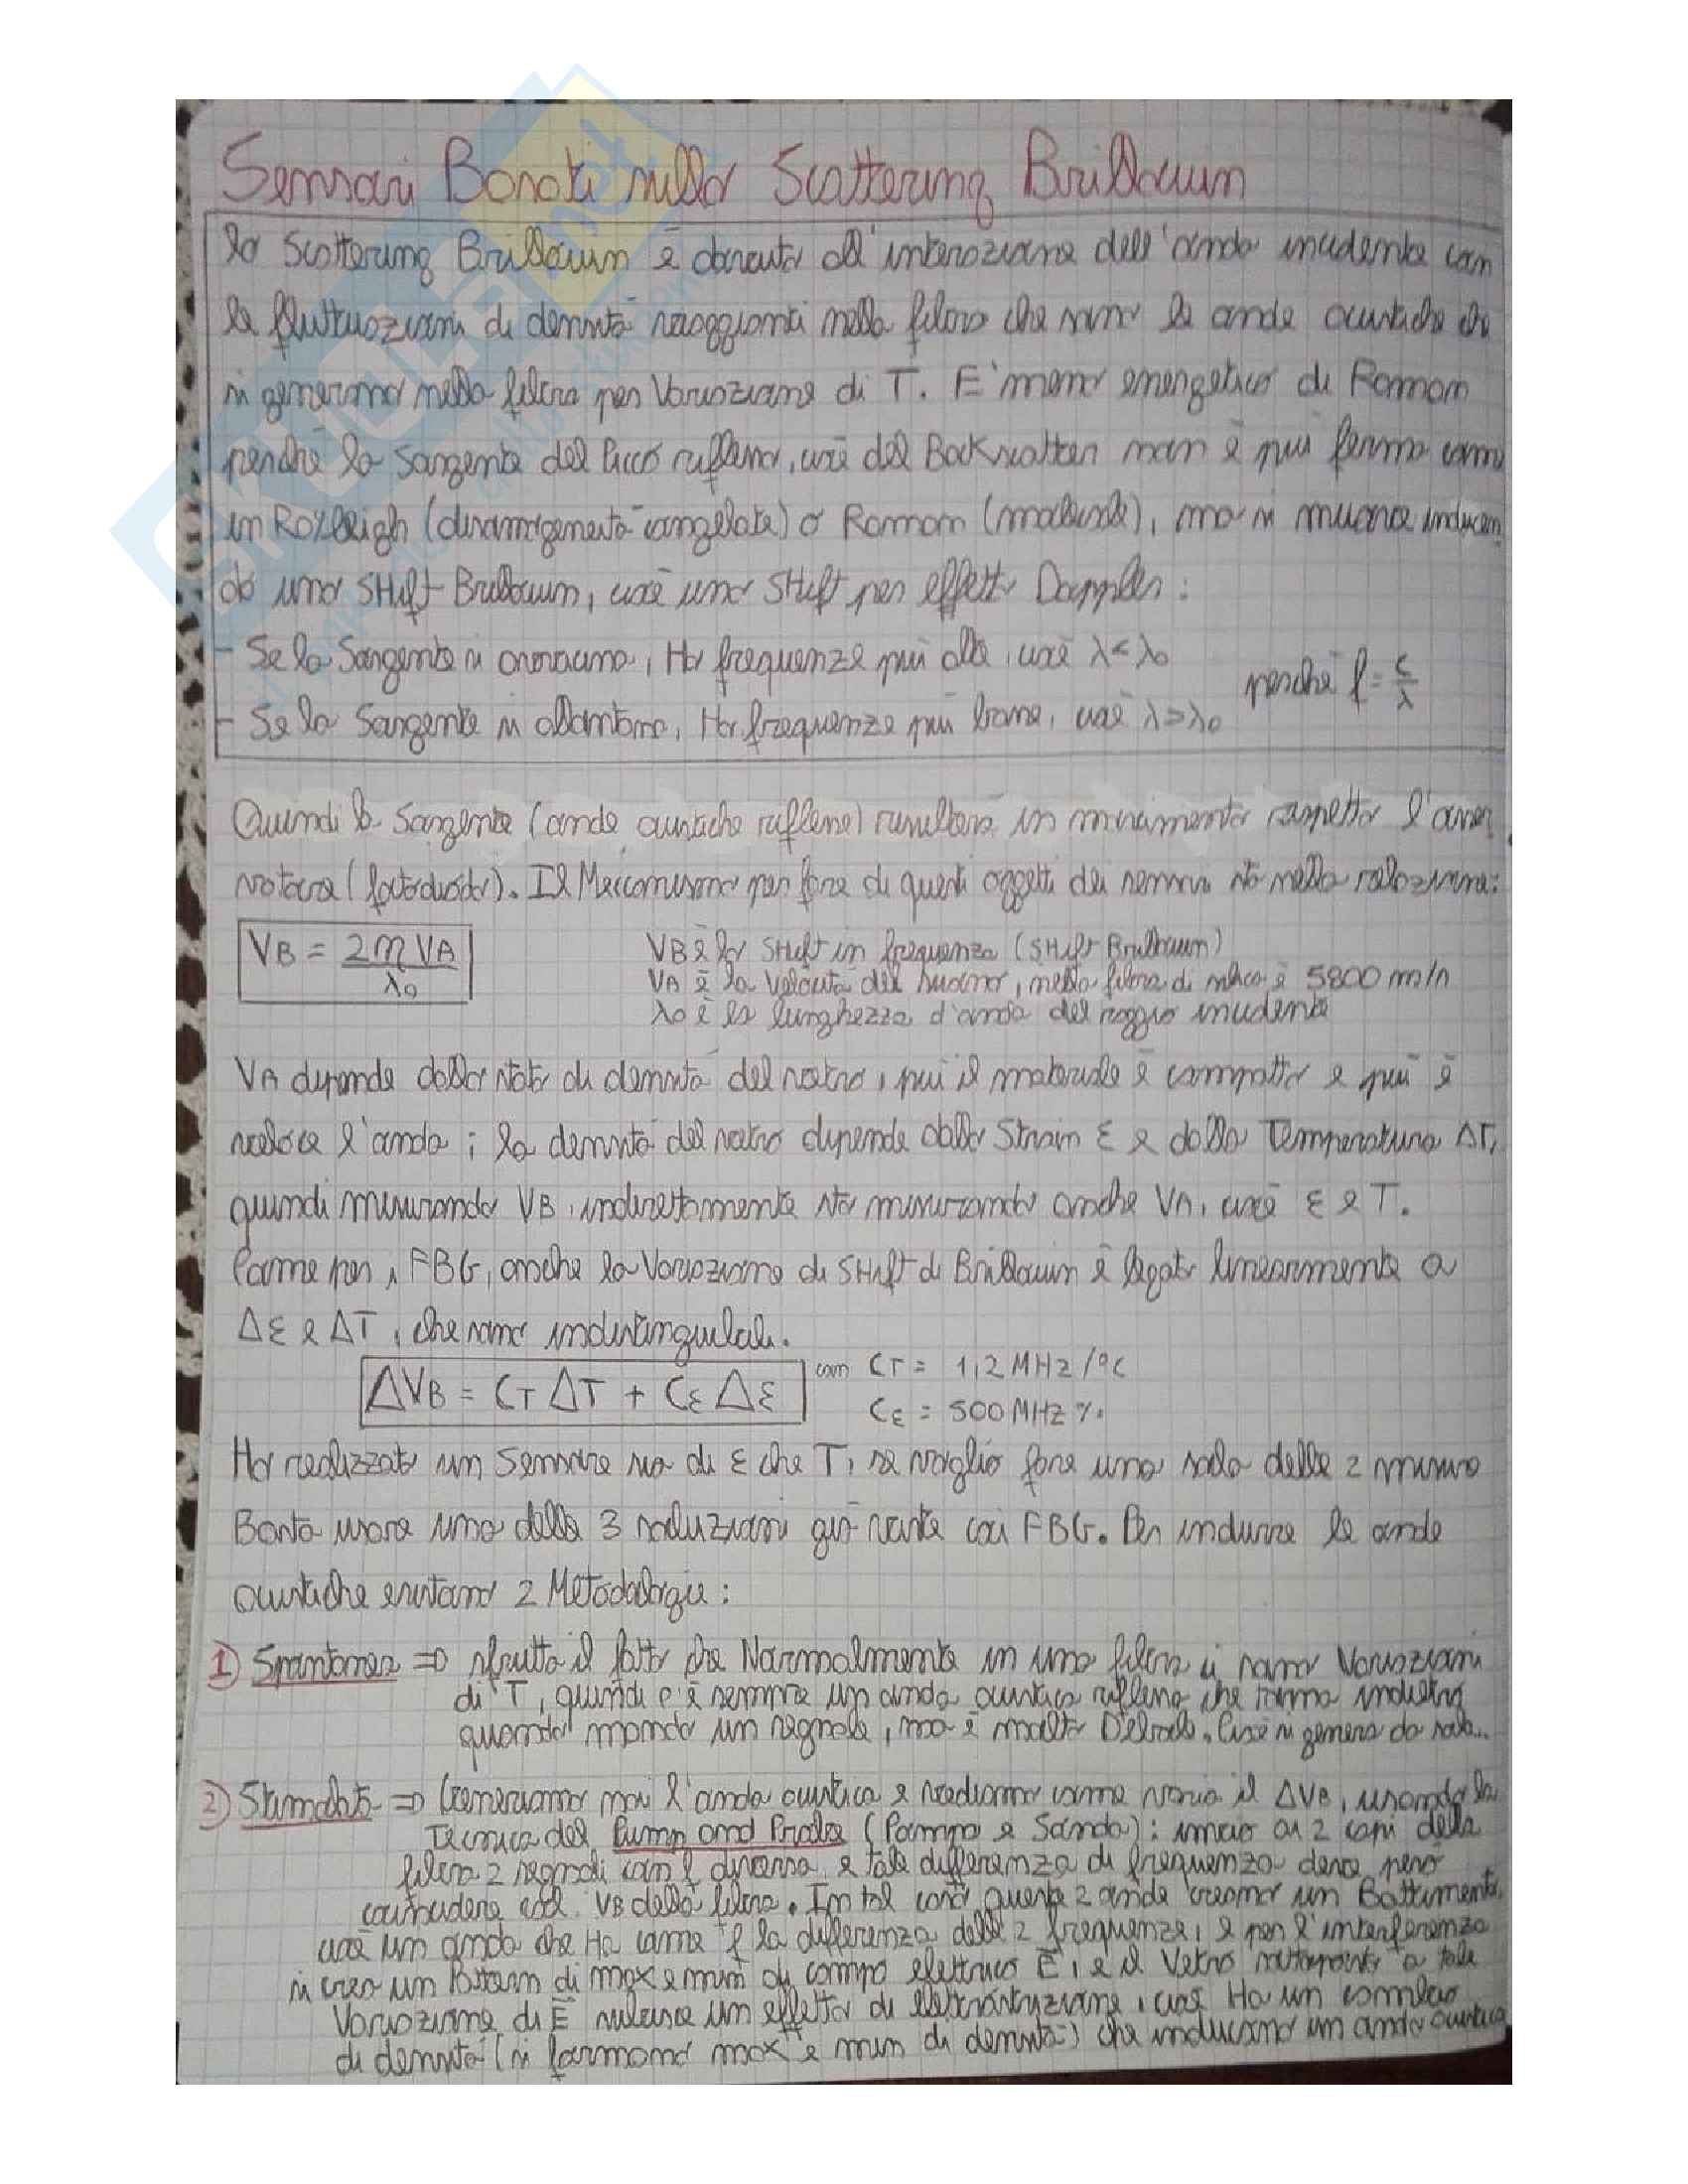 Sensori Basati sullo Scattering Brillouin
lo Scattering Brillouin è dovuto all'interazione dell'onda incidente con
le fluttuazioni di densità viaggianti nella fibra che sono le onde acustiche che
si generano nella fibra per Variazione di T. E' meno energetico di Raman
perchè la Sorgente del Picco riflesso, cioè del Backscatter non è più ferma come
in Rayleigh (disomogeneità congelate) o Raman (molecole), ma si muove inducen
do uno SHift Brillouin, cioè uno SHift per effetto Doppler:
- Se la Sorgente si avvicina, Ho frequenze più alte, cioè λ<λ0
perchè f = c/λ
- Se la Sorgente si allontana, Ho frequenze più basse, cioè λ>λ0
Quindi la Sorgente (onde acustiche riflesse) risulterà in movimento rispetto l'osser
vatore (fotodiodo). Il Meccanismo per fare di questi oggetti dei sensori sta nella relazione:
VB = 2 n VA / λ0
VB è lo SHift in frequenza (SHift Brillouin)
VA è la Velocità del suono, nella fibra di silice è 5800 m/s
λ0 è la lunghezza d'onda del raggio incidente
VA dipende dallo stato di densità del vetro, più il materiale è compatto e più è
veloce l'onda; la densità del vetro dipende dallo Strain ε e dalla Temperatura ΔT,
quindi misurando VB, indirettamente sto misurando anche VA, cioè ε e T.
Come per i FBG, anche la Variazione di SHift di Brillouin è legata linearmente a
Δε e ΔT, che sono indistinguibili.
ΔVB = CT ΔT + Cε Δε con CT = 1,2 MHz/°C
Cε = 500 MHz %.
Ho realizzato un Sensore sia di ε che T, se voglio fare una sola delle 2 misure
Basta usare una delle 3 soluzioni già viste coi FBG. Per indurre le onde
acustiche esistono 2 Metodologie:
1) Spontanea ⇒ sfrutta il fatto che Normalmente in una fibra ci sono Variazioni
di T, quindi c'è sempre un onda acustica riflessa che torna indietro
quando mando un segnale, ma è molto Debole. Cioè si genera da sola...
2) Stimolata ⇒ Generiamo noi l'onda acustica e vediamo come varia il ΔVB, usando la
Tecnica del Pump and Probe (Pompa e Sonda): invio ai 2 capi della
fibra 2 segnali con f diversa, e tale differenza di frequenza deve però
coincidere col VB della fibra. In tal caso queste 2 onde creano un Battimento,
cioè un onda che Ha come f la differenza delle 2 frequenze, e per l'interferenza
si crea un Pattern di max e min di campo elettrico E, e il Vetro sottoposto a tale
Variazione di E subisce un effetto di elettrostrizione, cioè Ha un cambio
di densità (si formano max e min di densità) che inducono un onda acustica